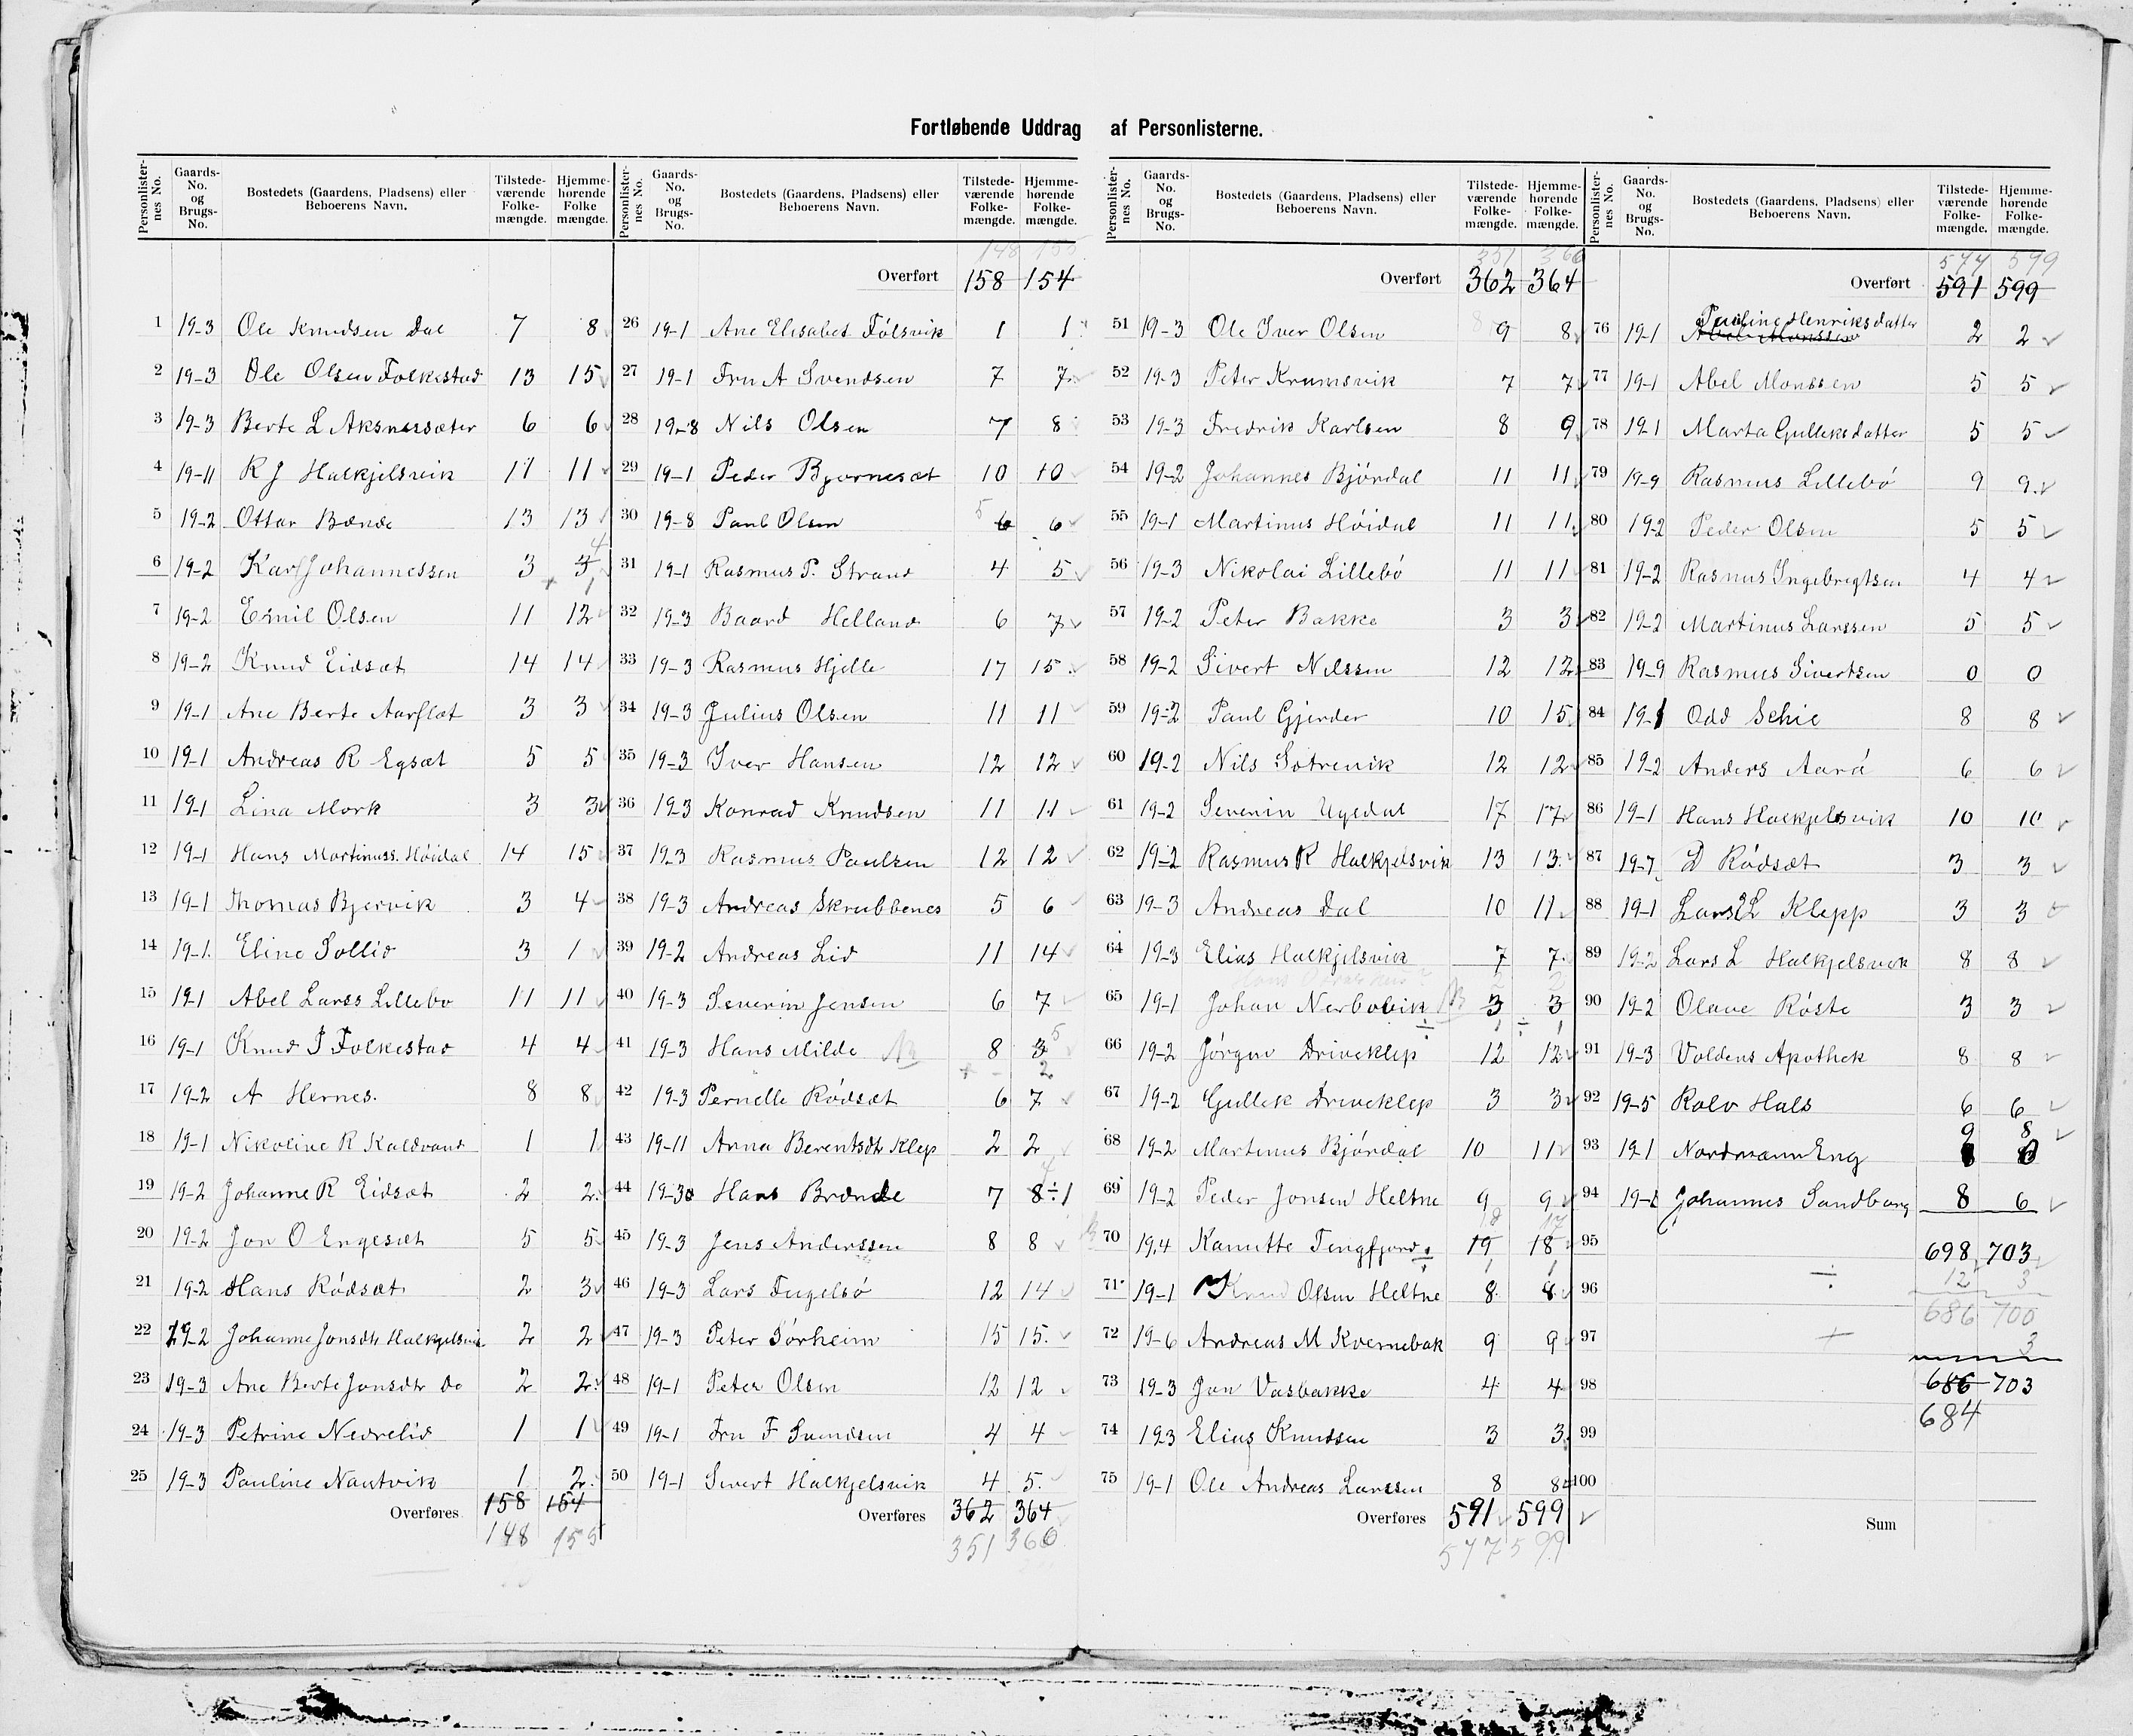 Fortløbende Uddrag af Personlisterne.
Personlisternes No. Gaards-No. og Brugs-No. Bostedets (Gaardens, Pladsens) eller Beboerens Navn. Tilstedeværende Folkemængde. Hjemmehørende Folkemængde.
1 19-3 Ole Knudsen Dal 7 8
2 19-3 Ole Olsen Folkestad 13 15
3 19-3 Berte L Aksnessæter 6 6
4 19-11 R J Halkjelsvik 11 11
5 19-2 Ottar Bænde 13 13
6 19-2 Karl Johannessen 3 3 4
7 19-2 Emil Olsen 11 12
8 19-2 Knud Eidsæt 14 14
9 19-1 Ane Berte Aarflot 3 3
10 19-1 Andreas R Egsæt 5 5
11 19-1 Lina Mork 3 3
12 19-1 Hans Martinuss. Høidal 14 15
13 19-1 Thomas Bjervik 3 4
14 19-1. Eline Sollid 3 1
15 19-1 Abel Larss Lillebo 11 11
16 19-1 Knud J Folkestad 4 4
17 19-2 A Hernes. 8 8
18 19-1 Nikoline R Kaldvand 1 1
19 19-2 Johanne R Eidsæt 2 2
20 19-2 Jon O Engesæt 5 5
21 19-2 Hans Rødsæt 2 3
22 19-2 Johanne Jonsdtr Halkjelsvik 2 2
23 19-3 Ane Berte Jonsdtr do 2 2
24 19-3 Petrine Nedrelid 1 1
25 19-3 Pauline Nautvik 1 2
Overføres 158 154
148 155
148 155
Overført 158 154
26 19-1 Ane Elisabet Følsvik 1 1
27 19-1 Fru A Svendsen 7 7
28 19-8 Nils Olsen 7 8
29 19-1 Peder Bjornesæt 10 10
30 19-8 Paul Olsen 5 6 6
31 19-1 Rasmus P. Strand 4 5
32 19-3 Baard Helland 6 7
33 19-3 Rasmus Hjelle 17 15
34 19-3 Julius Olsen 11 11
35 19-3 Iver Hansen 12 12
36 19-3 Konrad Knudsen 11 11
37 19-3 Rasmus Paulsen 12 12
38 19-3 Andreas Skrubbenes 5 6
39 19-2 Andreas Lid 11 14
40 19-3 Severin Jensen 6 7
41 19-3 Hans Milde 8 3 5
42 19-3 Pernelle Rødsæt 6 7
43 19-11 Anna Berentsdtr Klep 2 2
44 19-30 Hans Brænde 7 8÷1
45 19-3 Jens Anderssen 8 8
46 19-3 Lars Fugelsø 12 14
47 19-3 Peter Tørheim 15 15.
48 19-1 Peter Olsen 12 12
49 19-1 Fru F Svendsen 4 4
50 19-1 Sivert Halkjelsvik 4 5
Overføres 362 364
351 366
351 366
Overført 362 364
51 19-3 Ole Iver Olsen 9 8
52 19-3 Peter Krumsvik 7 7
53 19-3 Fredrik Karlsen 8 9
54 19-2 Johannes Bjørdal 11 11
55 19-1 Martinus Høidal 11 11
56 19-3 Nikolai Lillebø 11 11
57 19-2 Peter Bakke 3 3
58 19-2 Sivert Nilssen 12 12
59 19-2 Paul Gjerder 10 15
60 19-2 Nils Sotrevik 12 12
61 19-2 Severin Ugedal 17 17
62 19-2 Rasmus R Halkjelsvik 13 13
63 19-3 Andreas Dal 10 11
64 19-3 Elias Halkjelsvik 7 7
65 19-1 Johan Nerbøvik 3 3
66 19-2 Jørgen Driveklep 12 12
67 19-2 Gullik Driveklep 3 3
68 19-2 Martinus Bjørdal 10 11
69 19-2 Peder Jonsen Heltne 9 9
70 19.4 Kanutte Tengfjord 19 18
71 19-1 Knud Olsen Heltne 8 8
72 19-6 Andreas M Kvernebak 9 9
73 19-3 Jon Vasbakke 4 4
74 19-3 Elias Knudsen 3 3
75 19-1 Ole Andreas Larssen 8 8
Overføres 591 599
577 599
577 599
Overført 591 599
76 19-1 Pauline Henriksdatter 2 2
77 19-1 Abel Monssen 5 5
78 19-1 Marta Gulleksdatter 5 5
79 19-9 Rasmus Lillebø 9 9
80 19-2 Peder Olsen 5 5
81 19-2 Rasmus Ingebregtsen 4 4
82 19-2 Martinus Larssen 5 5
83 19-9 Rasmus Sivertsen 0 0
84 19-1 Odd Schie 8 8
85 19-2 Anders Aarø 6 6
86 19-1 Hans Halkjelsvik 10 10
87 19-7 D Rødsæt 3 3
88 19-1 Lars L Klepp 3 3
89 19-2 Lars L Halkjelsvik 8 8
90 19-2 Olave Røste 3 3
91 19-3 Voldens Apothek 8 8
92 19-5 Rolv Hals 6 6
93 19-1 Nordmann Eng 9 8
94 19-8 Johannes Sandborg 8 6
95 698 703
÷ 12 3
96 686 700
97 + 3
98 686 703
684
99
100
Sum